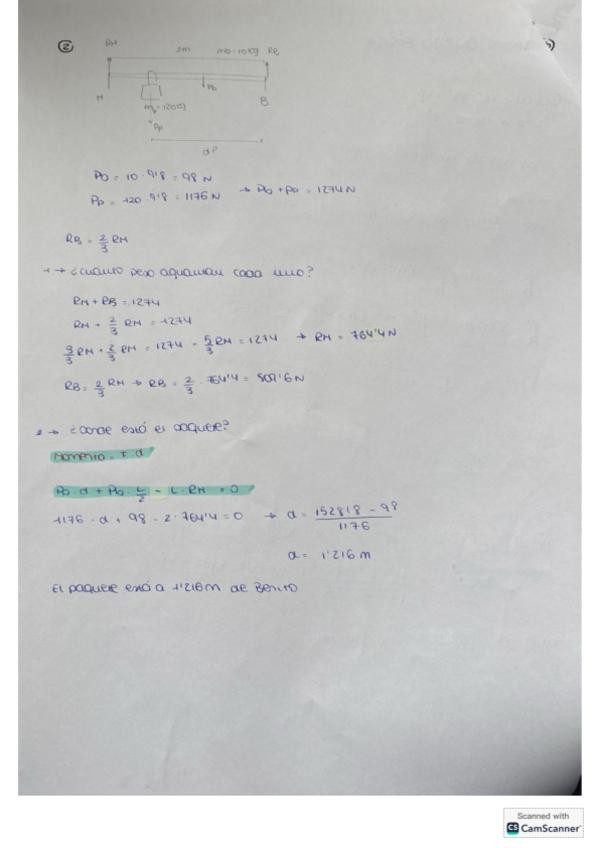 ②
RM 2m mb=10kg RB
M Pb B
mp=120kg
Pp
dP
Pb = 10 · 9'8 = 98 N
Pp = 120 · 9'8 = 1176 N → Pb + Pp = 1274 N
RB = 2/3 RM
1 → ¿cuánto peso aguantan cada uno?
RM + RB = 1274
RM + 2/3 RM = 1274
3/3 RM + 2/3 RM = 1274 = 5/3 RM = 1274 → RM = 764'4 N
RB = 2/3 RM → RB = 2/3 · 764'4 = 509'6 N
2 → ¿Donde está el paquete?
Momento = F · d
Pp · d + Pb · L/2 - L · RM = 0
1176 · d + 98 - 2 · 764'4 = 0 → d = 1528'8 - 98 / 1176
d = 1'216 m
El paquete está a 1'216 m de Benito
Scanned with
CS CamScanner